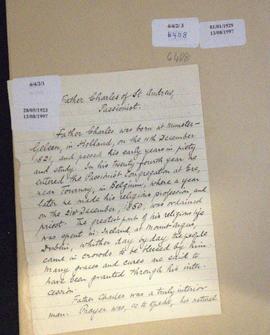 6/4/2/3
6408
01/01/1929
13/08/1997
6408
6/4/2/3
28/05/1923
13/08/1997
Father Charles of St Andrew,
Passionist.
Father Charles was born at Munster-
Geleen, in Holland, on the 11th December
1821, and passed his early years in piety
and study. In his twenty fourth year he
entered the Passionist Congregation at Ere,
near Tournay, in Belgium, where a year
later he made his religious profession, and
on the 21st December, 1850, was ordained
priest. The greatest part of his religious life
was spent in Ireland at Mount Argus,
Dublin, whither day by day the people
came in crowds to be blessed by him.
Many graces and cures are said to
have been granted through his inter-
cession.
Father Charles was a truly interior
man. Prayer was, so to speak, his natural